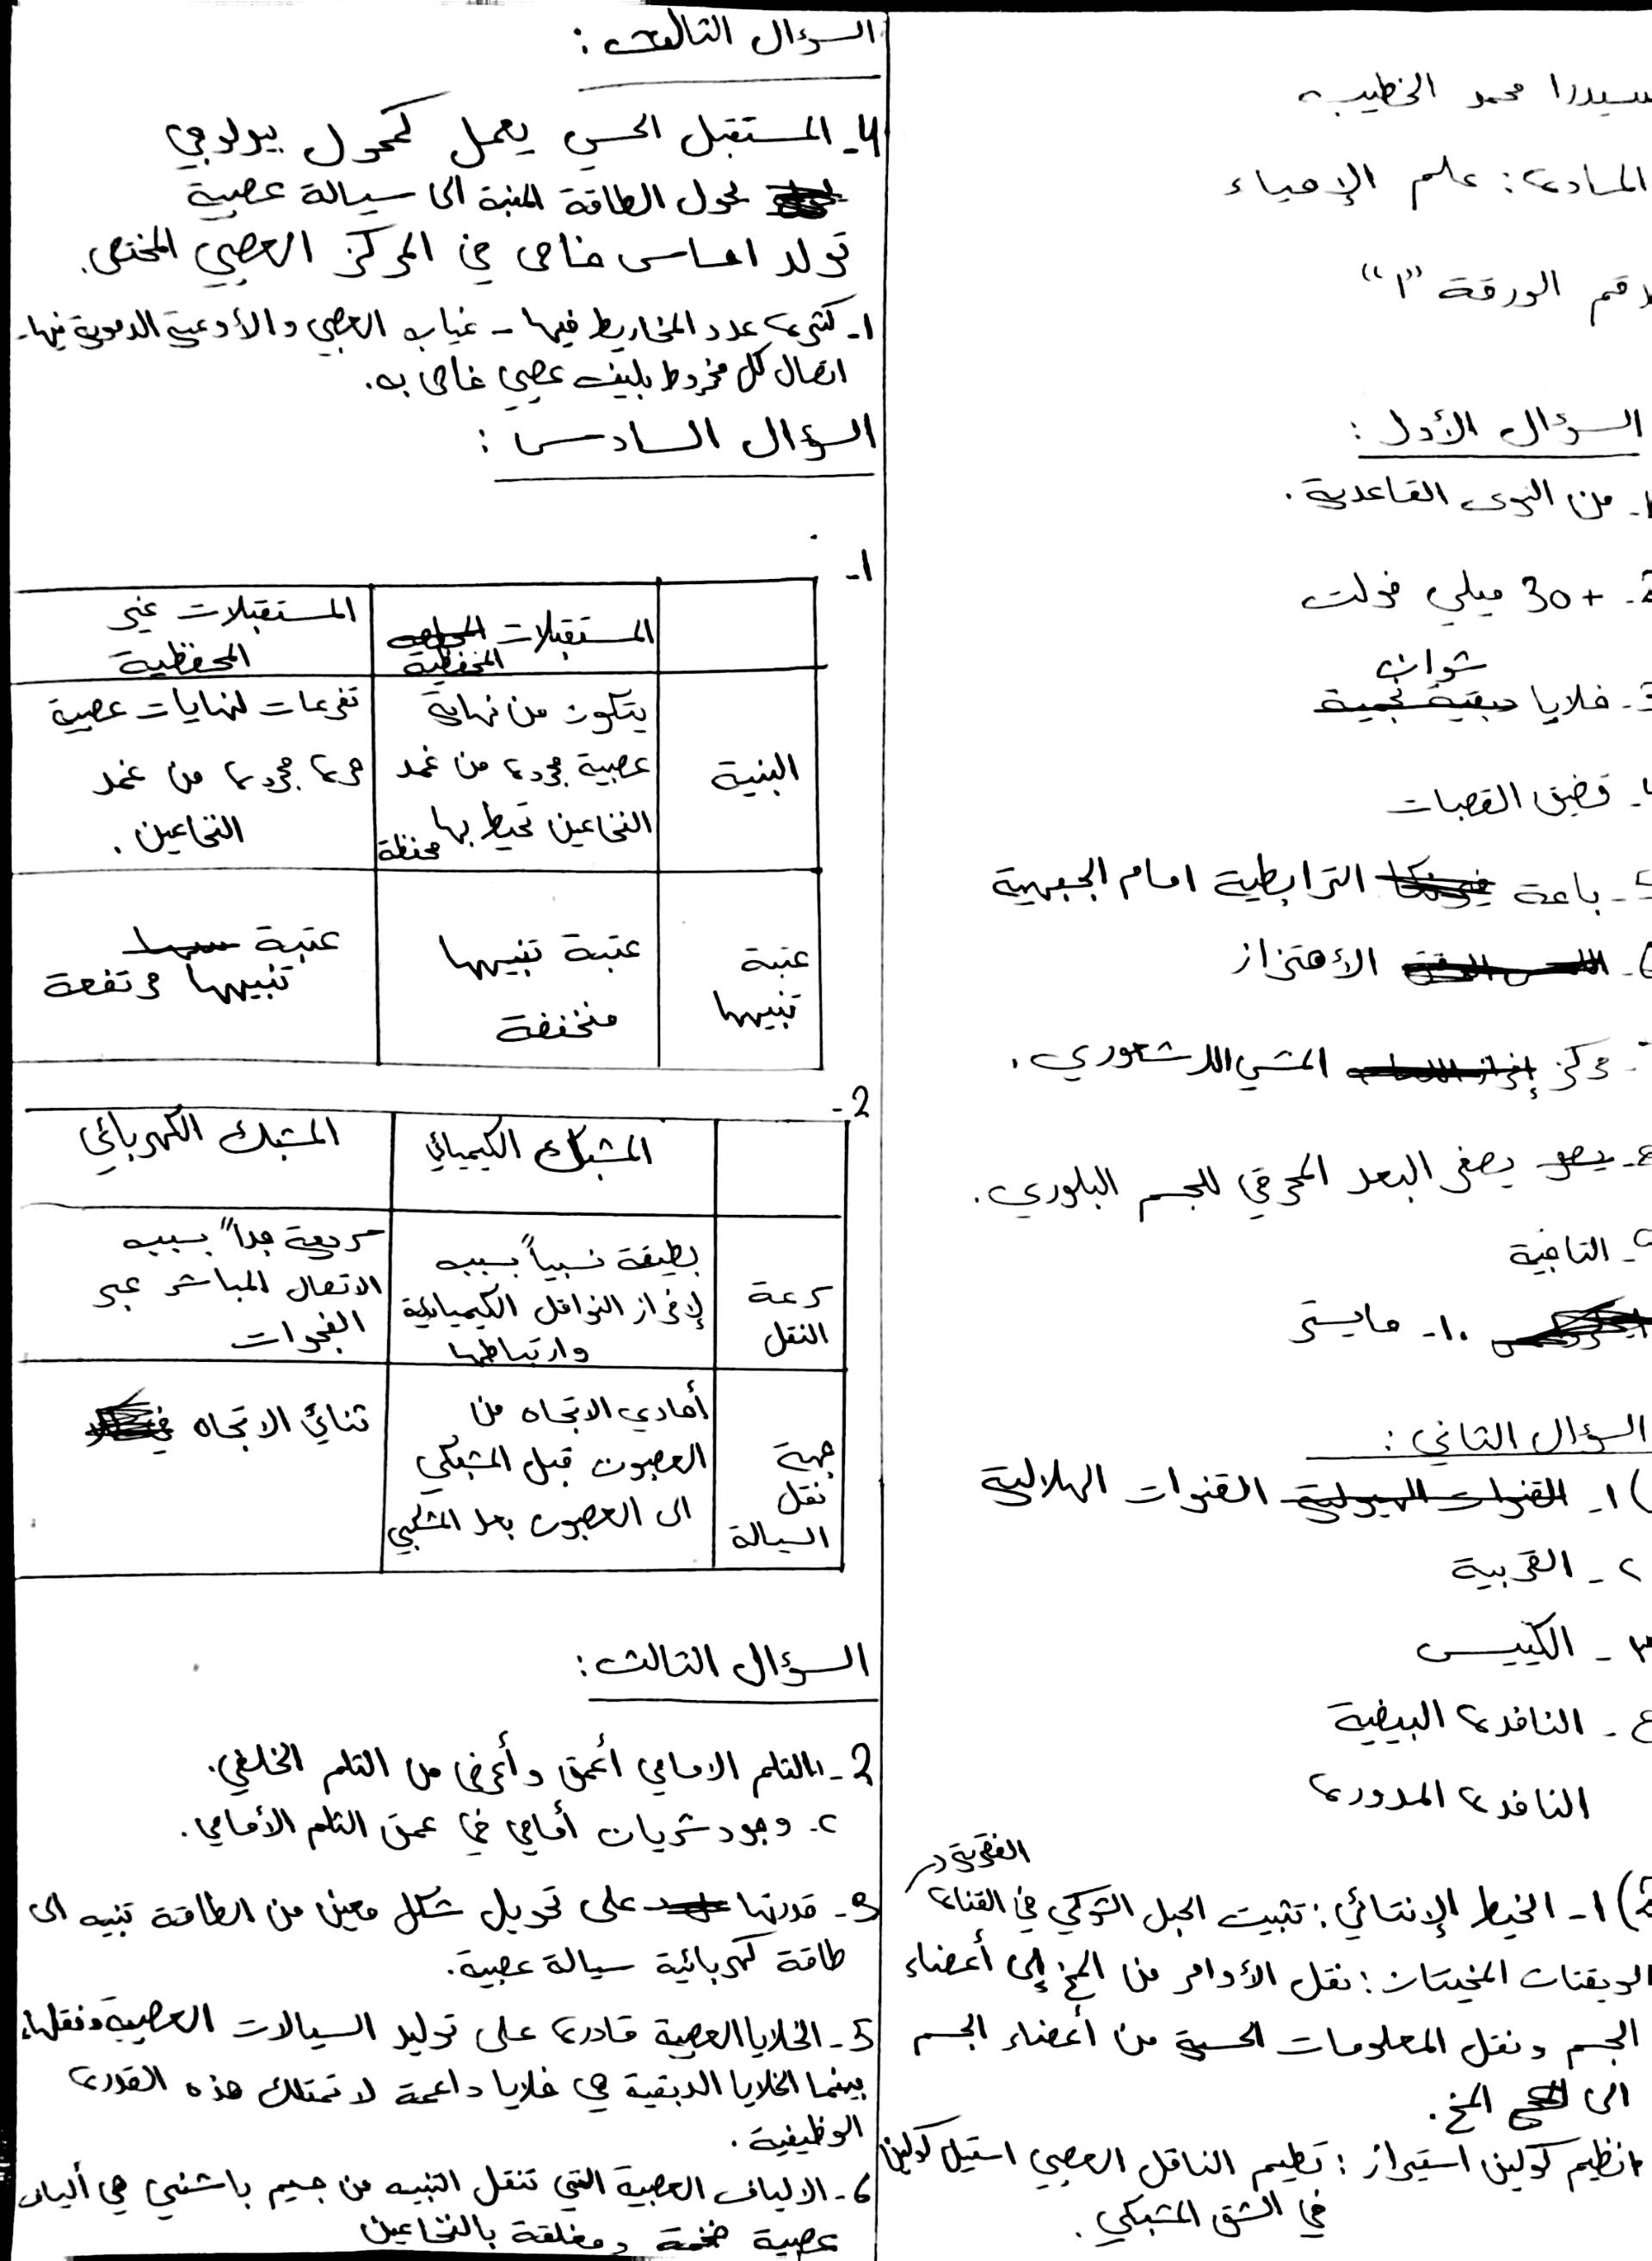 سيدرا محمد الخطيب
المادة: علم الإحياء
رقم الورقة "١"
السؤال الأول:
1- من النوى القاعدية.
2- +30 ميلي فولت
3- خلايا شوان
4- تضيق القصبات
5- باحة الترابطية امام الجبهية
6- الأهتزاز
7- مركز المشي اللاشعوري.
8- يصغر البعد المحرقي للجسم البلوري.
9- التاجية
10- مايستر
السؤال الثاني:
1) ١- القنوات الهلالية
٢- القربية
٣- الكييس
٤- النافذة البيضية
النافذة المدورة
2) ١- الخيط الإنتهائي: تثبيت الحبل الشوكي في القناة الفقرية
الويقتات المخيتان: نقل الأوامر من المخ إلى أعضاء
الجسم ونقل المعلومات الحسية من أعضاء الجسم
الى المخ.
انظيم كولين استيراز: تحطيم الناقل العصبي استيل كولين
في الشق المشبكي.
السؤال الثالث:
4- المستقبل الحسي يعمل كمحول بيولوجي
يحول الطاقة المنبة الى سيالة عصبية
تولد احساس خاص في المركز العصبي المختص.
1- كثرة عدد المخاريط فيها - غياب العصي والأوعية الدموية فيها-
اتصال كل مخروط بليف عصبي خاص به.
السؤال السادس:
1-
المستقبلات المحفظية | المستقبلات غير المحفظية
البنية | يتكون من نهاية عصبية مجردة من غمد النخاعين تحيط بها محفظة | تفرعات لنهايات عصبية حرة مجردة من غمد النخاعين.
عتبة تنبيهها | عتبة تنبيهها منخفضة | عتبة تنبيهها مرتفعة
2-
المشبك الكيميائي | المشبك الكهربائي
سرعة النقل | بطيئة نسبياً بسبب لإفراز النواقل الكيميائية وارتباطها | سريعة جداً بسبب الاتصال المباشر عبر الفجوات
جهة نقل السيالة | أحادي الاتجاه من العصبون قبل المشبكي الى العصبون بعد المشبكي | ثنائي الاتجاه
السؤال الثالث:
2- ١- الثلم الامامي أعمق وأعرض من الثلم الخلفي.
٢- وجود شريان أمامي في عمق الثلم الأمامي.
3- قدرتها على تحويل شكل معين من الطاقة تنبيه الى
طاقة كهربائية سيالة عصبية.
5- الخلايا العصبية قادرة على توليد السيالات العصبية ونقلها،
بينما الخلايا الدبقية هي خلايا داعمة لا تمتلك هذه القدرة
الوظيفية.
6- الالياف العصبية التي تنقل التنبيه من جسيم باشيني هي ألياف
عصبية ضخمة ومغلفة بالنخاعين